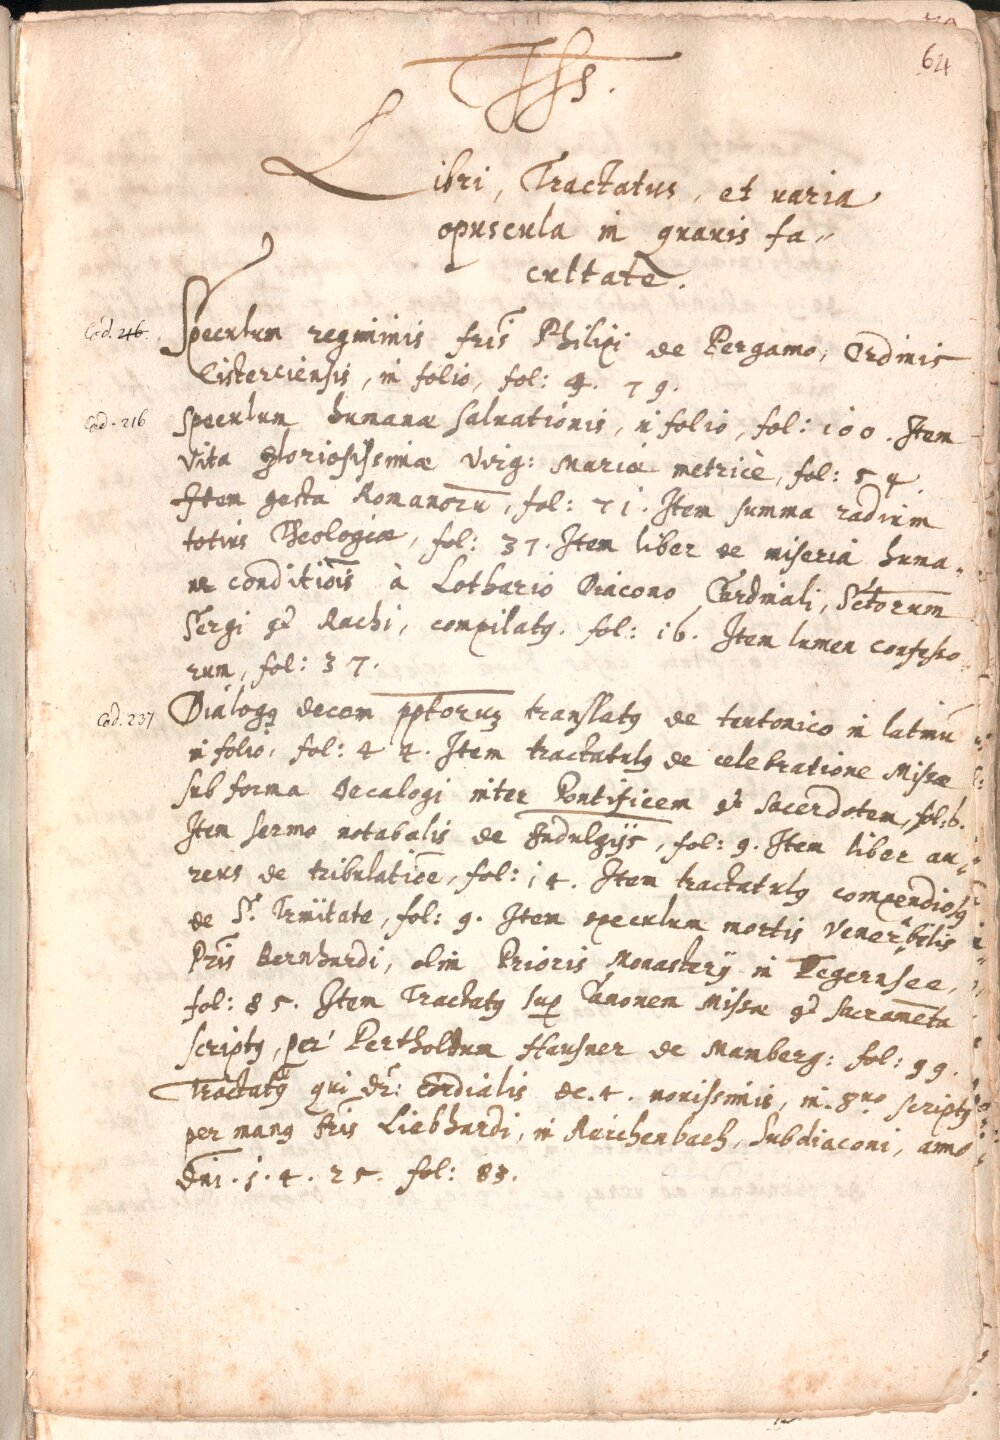 64
Jhs.
Libri, Tractatus, et uaria
opuscula in quauis fa„
cultate.
Cod. 246.
Speculum regiminis fris Philipi de Pergamo, Ordinis
Cisterciensis, in folio, fol: 79.
Cod. 216
Speculum humanæ saluationis, in folio, fol: 100. Item
Vita gloriosissimæ Virg: Mariæ metricè, fol: 54.
Item gesta Romanorū, fol: 71. Item summa radium
totius Theologiæ, fol: 37. Item liber de miseria huma„
ne conditiois à Lothario Diacono Cardinali, Sctorum
Sergi qz Rachi, compilatq. fol: 16. Item lumen confesso„
rum, fol: 37.
Cod. 237
Dialogq decem pptorum translatq de teutonico in latinū
in folio, fol: 44. Item tractatulq de celebratione Missæ
sub forma Decalogi inter Pontificem qz sacerdotem, fol: 6.
Item sermo notabalis de Indulgijs, fol: 9. Item liber au„
reus de tribulatioe, fol: 14. Item tractatulq compendiosq
de S. Trinitate, fol: 9. Item speculum mortis Venerabilis
Pris Bernhardi, olim Prioris Monasterij in Tegernsee,
fol: 85. Item Tractatq sup Canonem Missæ qz sacrameta
scriptq, per Pertholdum Hausner de Mamberg: fol: 99.
Tractatq qui dr: cordialis de .4. nouissimis, in .8no scriptq
per manq fris Liebhardi, in Reichenbach, Subdiaconi, anno
dni .1.4.25. fol: 83.